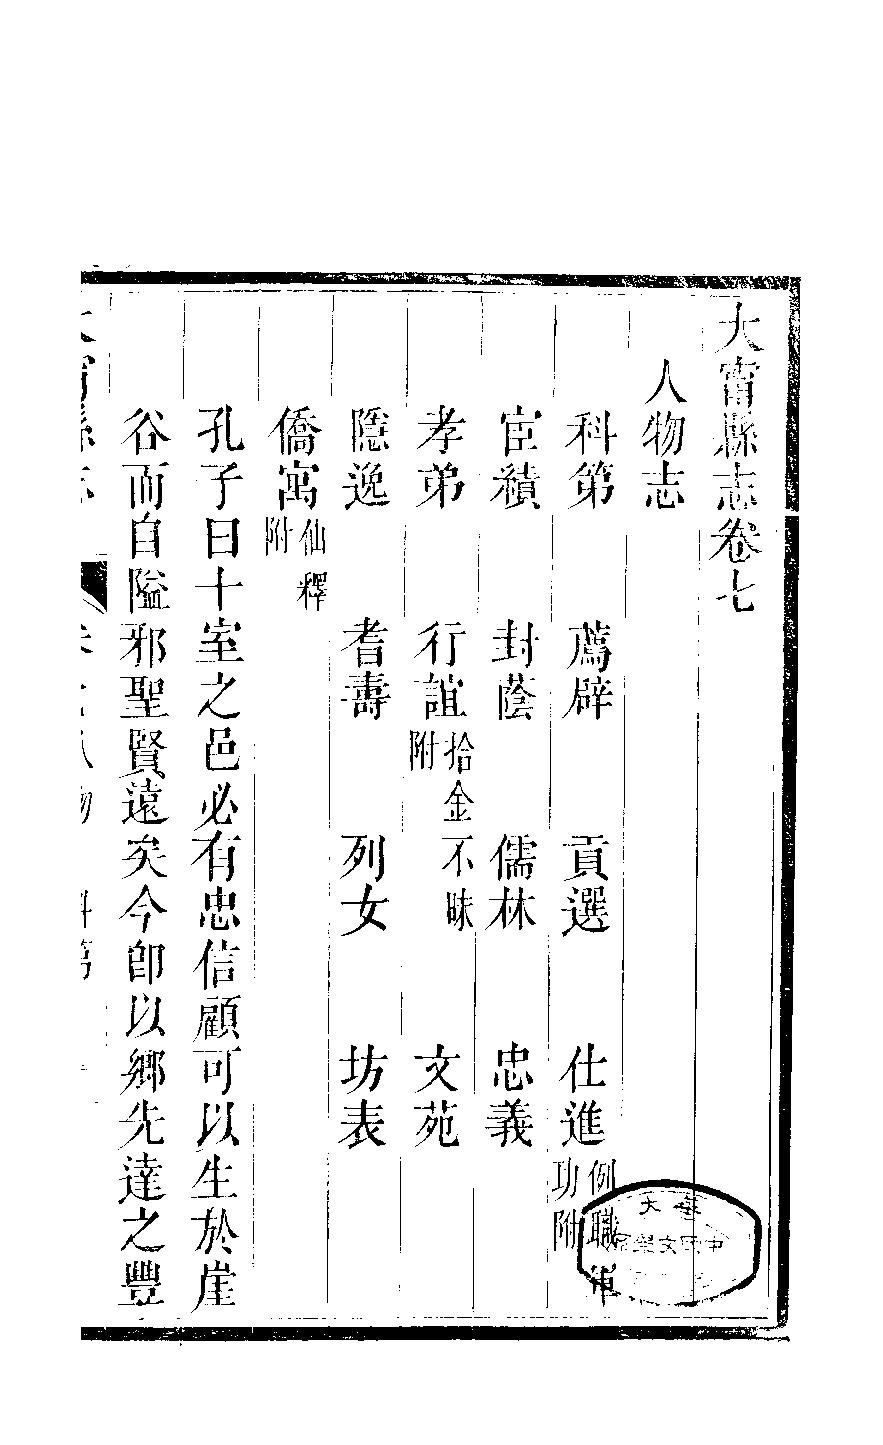 大甯縣志卷七
人物志
科第 薦辟 貢選 仕進例職軍功附
宦績 封蔭 儒林 忠義
孝弟 行誼拾金不昧附 文苑
隱逸 耆壽 列女 坊表
僑寓仙釋附
孔子曰十室之邑必有忠信顧可以生於崖
谷而自隘邪聖賢遠矣今卽以鄉先達之豐